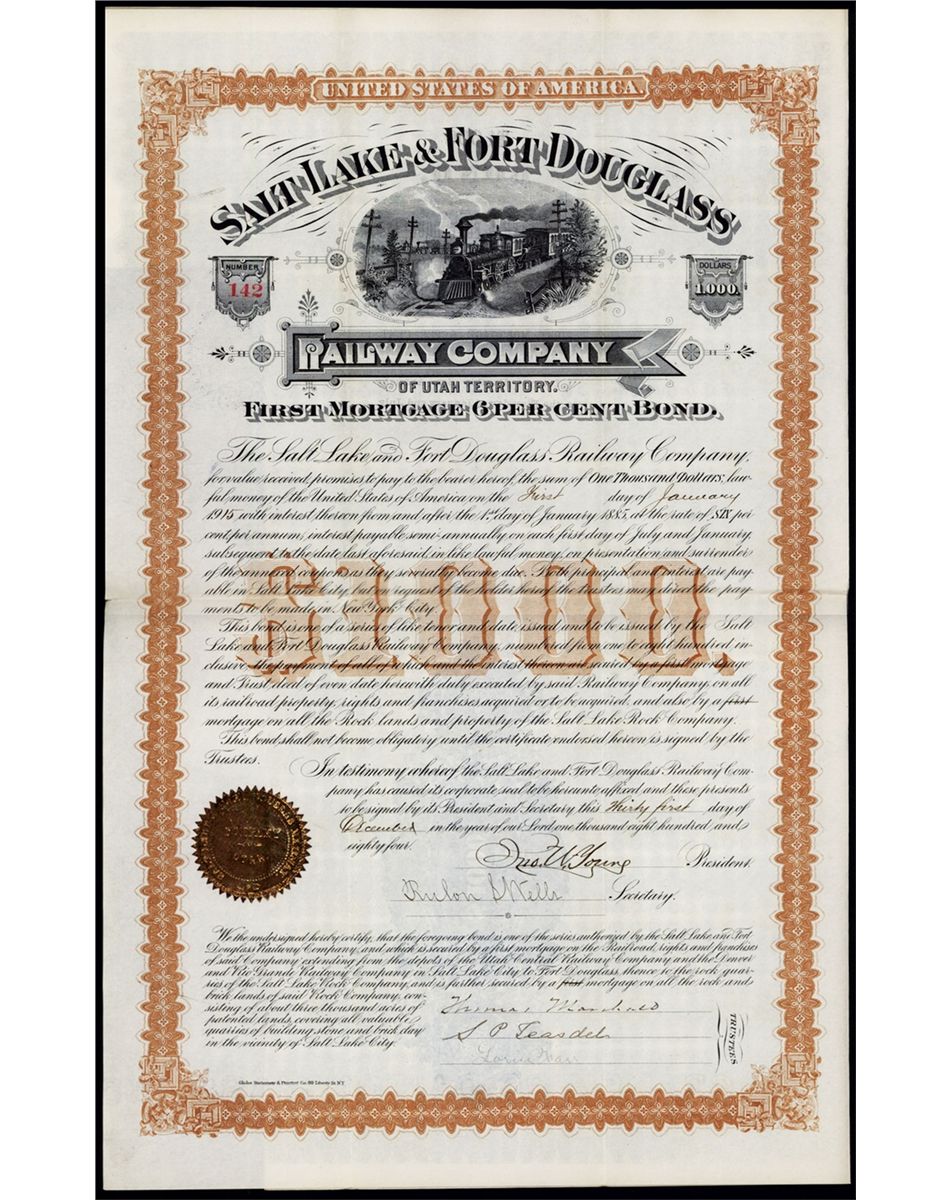 UNITED STATES OF AMERICA
SALT LAKE & FORT DOUGLASS
NUMBER
142
DOLLARS
1,000.
RAILWAY COMPANY
OF UTAH TERRITORY.
FIRST MORTGAGE 6 PER CENT BOND.
The Salt Lake and Fort Douglass Railway Company,
for value received, promises to pay to the bearer hereof, the sum of One Thousand Dollars, law-
ful money of the United States of America on the First day of January
1915, with interest thereon from and after the 1st day of January 1885, at the rate of SIX per
cent per annum, interest payable semi-annually on each first day of July and January,
subsequent to the date last aforesaid, in like lawful money, on presentation and surrender
of the annexed coupons as they severally become due. Both principal and interest are pay-
able in Salt Lake City, but at request of the holder hereof the trustees may direct the pay-
ments to be made in New York City.
$1000.
This bond is one of a series of like tenor and date, issued and to be issued by the Salt
Lake and Fort Douglass Railway Company, numbered from one to hundred, in-
clusive, the payment of all of which and the interest thereon are secured by a first mortgage
and Trust deed of even date herewith duly executed by said Railway Company, on all
its railroad property, rights and franchises acquired or to be acquired, and also by a first
mortgage on all the Rock lands and property of the Salt Lake Rock Company.
This bond shall not become obligatory until the certificate endorsed hereon is signed by the
Trustees.
In testimony whereof the Salt Lake and Fort Douglass Railway Com-
pany has caused its corporate seal to be hereunto affixed and these presents
to be signed by its President and Secretary this Thirty first day of
December in the year of our Lord one thousand eight hundred and
eighty four.
Jno. W. Young President.
Rulon S Wells Secretary.
We the undersigned hereby certify, that the foregoing bond is one of the series authorized by the Salt Lake and Fort
Douglass Railway Company, and which is secured by a first mortgage on the Railroad, rights and franchises
of said Company extending from the depots of the Utah Central Railway Company and the Denver
and Rio Grande Railway Company in Salt Lake City to Fort Douglass thence to the rock quar-
ries of the Salt Lake Rock Company, and is further secured by a first mortgage on all the rock and
brick lands of said Rock Company, con-
sisting of about three thousand acres of
patented lands, covering all valuable
quarries of building stone and brick clay
in the vicinity of Salt Lake City.
Thomas Marshall
S P Teasdel
Lorin Farr
TRUSTEES
Globe Stationery & Printing Co. 89 Liberty St. NY